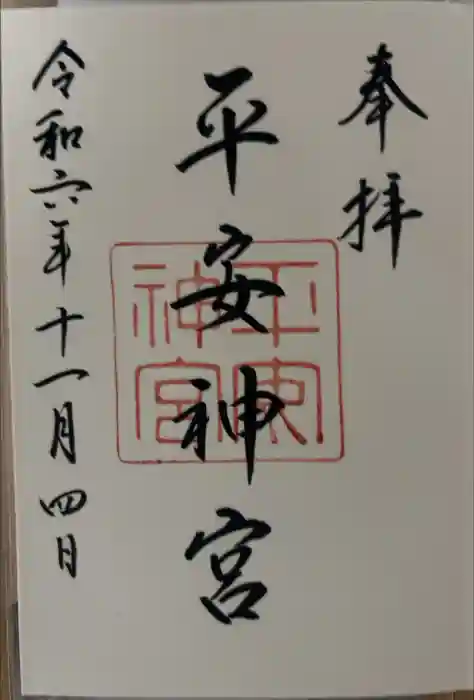 奉拝
平安神宮
平安神宮
令和六年十一月四日